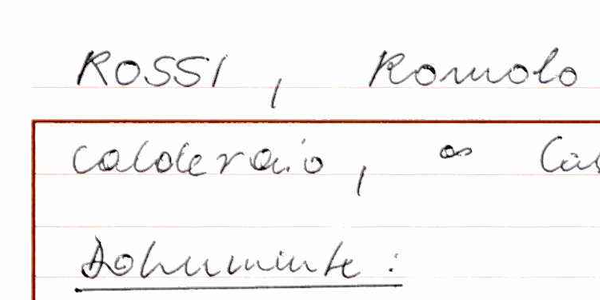 ROSSI, Romolo
Calderaio, ∞ Ca
Dokumente: